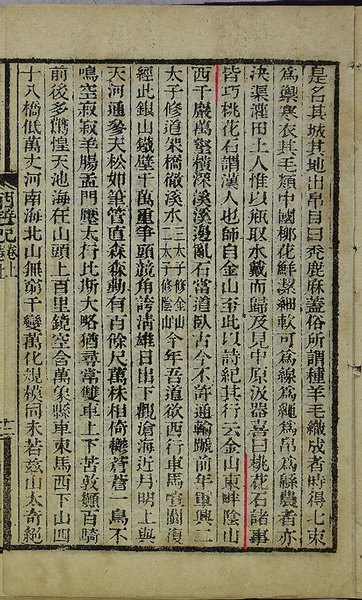 是名其城其地出帛目曰禿鹿麻蓋俗所謂種羊毛織成者時得七束
爲禦寒衣其毛類中國柳花鮮潔細軟可爲線爲繩爲帛爲綿農者亦
決渠灌田土人惟以瓶取水戴而歸及見中原汲器喜曰桃花石諸事
皆巧桃花石謂漢人也師自金山至此以詩紀其行云金山東畔陰山
西千巖萬壑橫深溪溪邊亂石當道臥古今不許通輪蹏前年軍興二
太子修道架橋徹溪水三太子修金山二太子修陰山今年吾道欲西行車馬喧闐復
經此銀山鐵壁千萬重爭頭競角誇清雄日出下觀滄海近月明上與
天河通參天松如筆管直森森動有百餘尺萬株相倚鬱蒼蒼一鳥不
鳴空寂寂羊腸孟門壓太行比斯大略猶尋常雙車上下苦敦顛百騎
前後多驚惶天池海在山頭上百里鏡空含萬象縣車束馬西下山四
十八橋低萬丈河南海北山無窮千變萬化規模同未若茲山太奇絕
西遊記 卷上